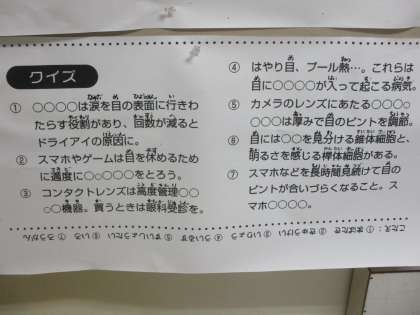 クイズ
① ○○○○は涙を目の表面に行きわ
たらす役割があり、回数が減ると
ドライアイの原因に。
② スマホやゲームは目を休めるため
に適度に○○○○をとろう。
③ コンタクトレンズは高度管理○○
○○機器。買うときは眼科受診を。
④ はやり目、プール熱…。これらは
目に○○○○が入って起こる病気。
⑤ カメラのレンズにあたる○○○○
○○は厚みで目のピントを調節。
⑥ 目には○○を見分ける錐体細胞と、
明るさを感じる桿体細胞がある。
⑦ スマホなどを長時間見続けて目の
ピントが合いづらくなること。ス
マホ○○○○。
こたえ：① まばたき ② きゅうけい ③ いりょう ④ ういるす ⑤ すいしょうたい ⑥ いろ ⑦ ろうがん